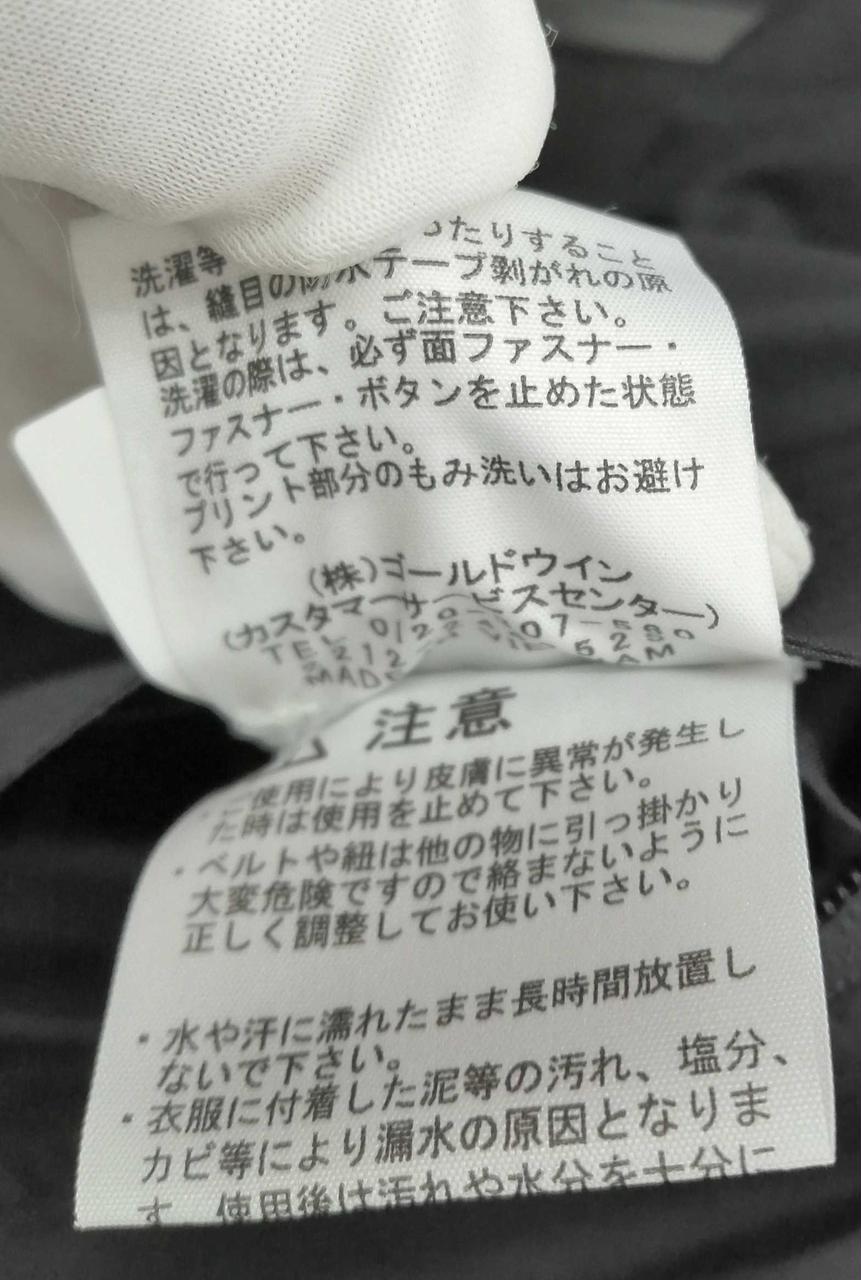 洗濯等 ったりすること
は、縫目の防水テープ剥がれの原
因となります。ご注意下さい。
洗濯の際は、必ず面ファスナー・
ファスナー・ボタンを止めた状態
で行って下さい。
プリント部分のもみ洗いはお避け
下さい。
(株)ゴールドウイン
(カスタマーサービスセンター)
TEL
MADE
注意
ご使用により皮膚に異常が発生し
た時は使用を止めて下さい。
・ベルトや紐は他の物に引っ掛かり
大変危険ですので絡まないように
正しく調整してお使い下さい。
・水や汗に濡れたまま長時間放置し
ないで下さい。
・衣服に付着した泥等の汚れ、塩分、
カビ等により漏水の原因となりま
す。使用後は汚れや水分を十分に